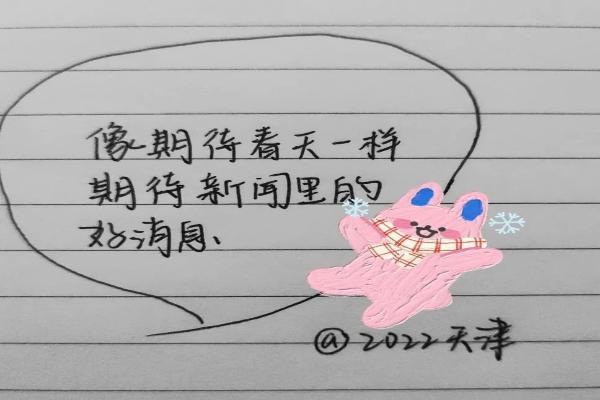 像期待春天一样
期待新闻里的
好消息、
@2022天津